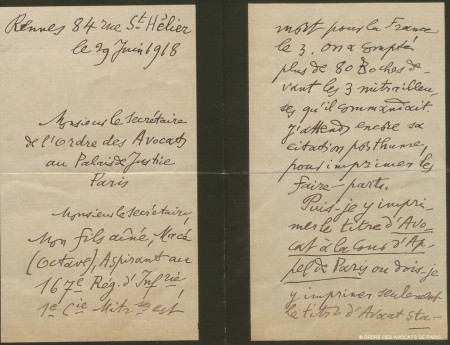 Rennes 84 rue St Hélier
le 29 Juin 1918
Monsieur le secrétaire
de l'Ordre des Avocats
au Palais de Justice
Paris
Monsieur le secrétaire,
Mon fils aîné, Macé
(Octave), Aspirant au
167e Rég. d'Infrie,
1e Cie Mitrses est
mort pour la France
le 3. on a compté
plus de 80 Boches de-
vant les 3 mitrailleu-
ses qu'il commandait.
J'attends encore sa
citation posthume,
pour imprimer les
faire-parts.
Puis-je y impri-
mer le titre d'Avo-
cat à la Cour d'Ap-
pel de Paris ou dois-je
y imprimer seulement
le titre d'Avocat sta-
© ORDRE DES AVOCATS DE PARIS